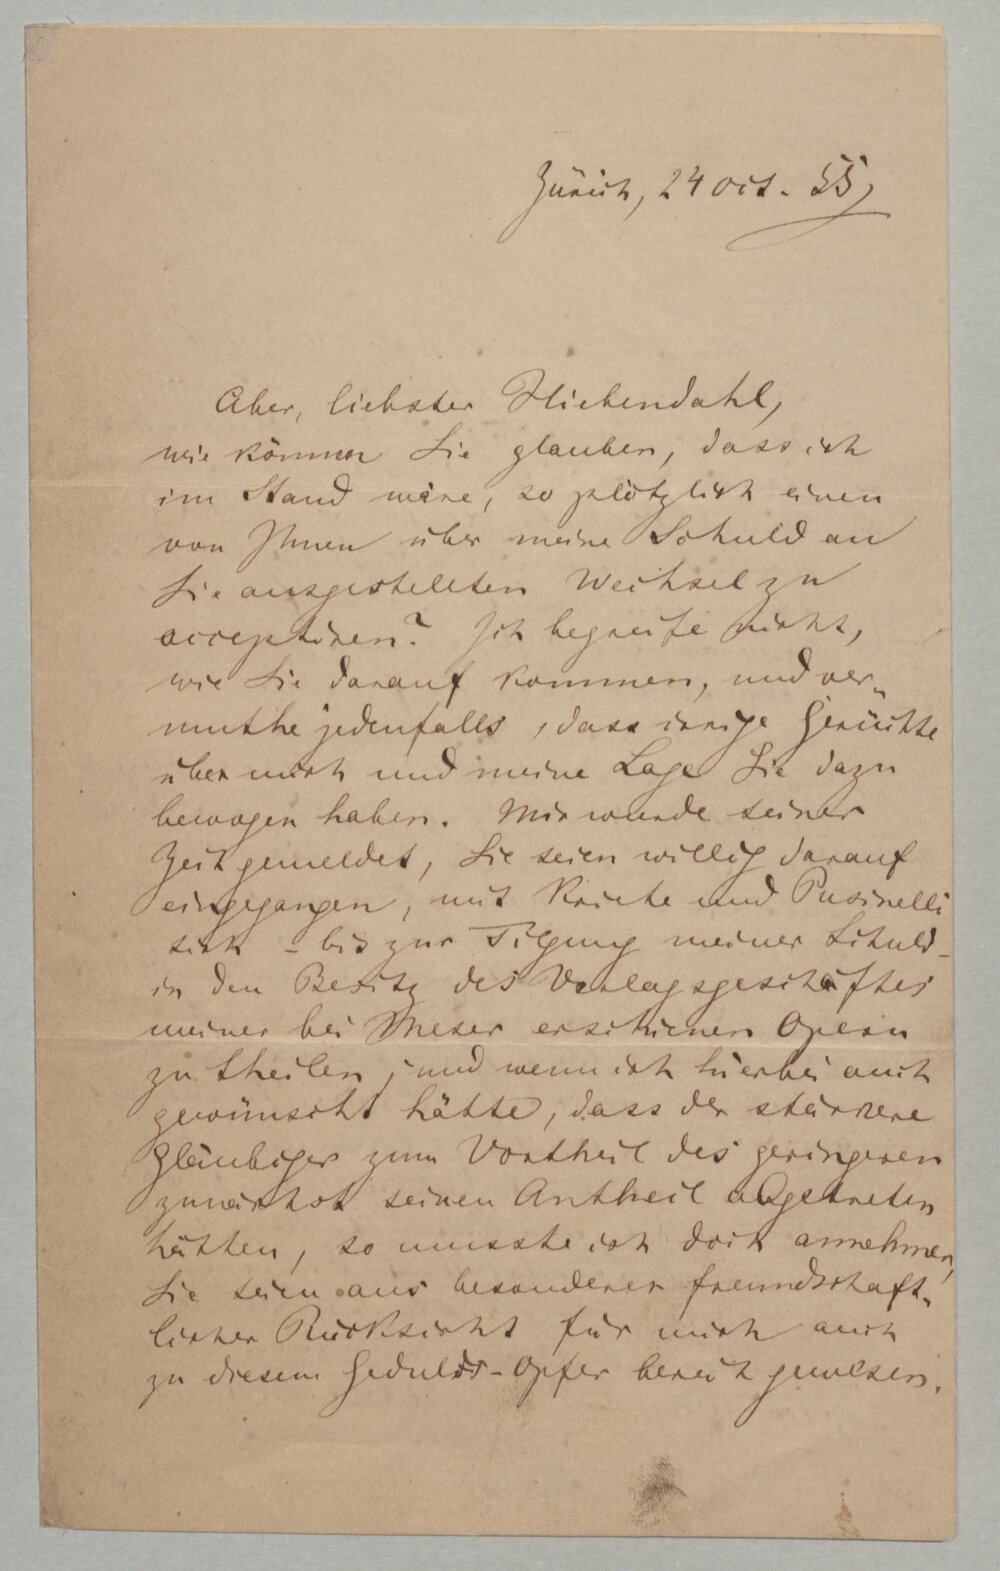 Zürich, 24 Oct. 55,
Aber, liebster Hiebendahl,
wie können Sie glauben, dass ich
im Stand wäre, so plötzlich einen
von Ihnen über meine Schuld an
Sie ausgestellten Wechsel zu
acceptiren? Ich begreife nicht,
wie Sie darauf kommen, und ver-
muthe jedenfalls, dass irrige Gerüchte
über mich und meine Lage Sie dazu
bewogen haben. Mir wurde seiner
Zeit gemeldet, Sie seien willig darauf
eingegangen, mit Kriete und Pusinelli
sich - bis zur Tilgung meiner Schuld -
in den Besitz des Verlagsgeschäftes
meiner bei Meser erschienen Opern
zu theilen; und wenn ich hierbei auch
gewünscht hätte, dass der stärkere
Gläubiger zum Vortheil des geringeren
zunächst seinen Antheil abgetreten
hätten, so musste ich doch annehmen,
Sie seien aus besonderer freundschaft-
licher Rücksicht für mich auch
zu diesem Gedulds-Opfer bereit gewesen.